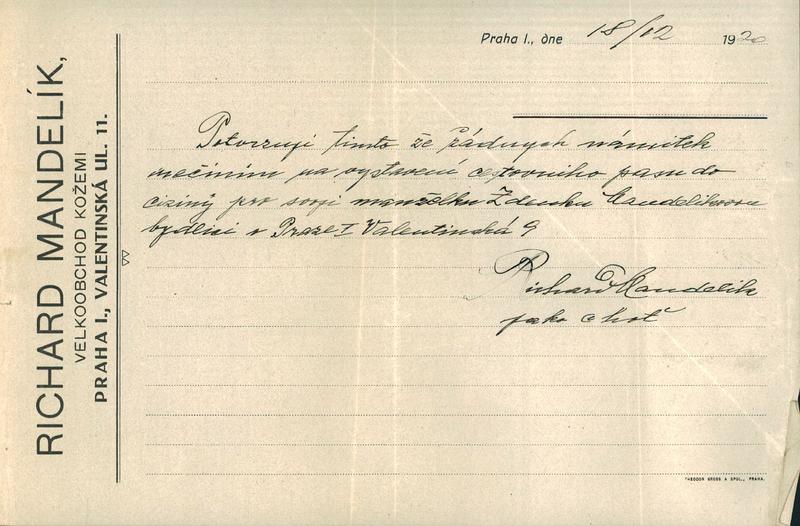 RICHARD MANDELÍK,
VELKOOBCHOD KOŽEMI
PRAHA I., VALENTINSKÁ UL. 11.
Praha I., dne 18/12 1920
Potvrzuji tímto že žádných námitek
nečiním na vystavení cestovního pasu do
ciziny pro svoji manželku Zdenku Mandelikovou
bydlící v Praze I Valentinská 9
Richard Mandelik
jako choť
THEODOR GROSS A SPOL., PRAHA.